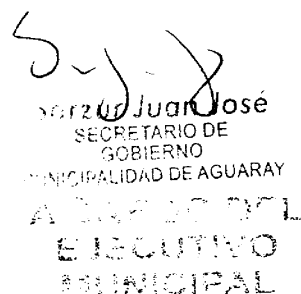 Juan José
SECRETARIO DE
GOBIERNO
MUNICIPALIDAD DE AGUARAY
A CARGO DEL
EJECUTIVO
MUNICIPAL